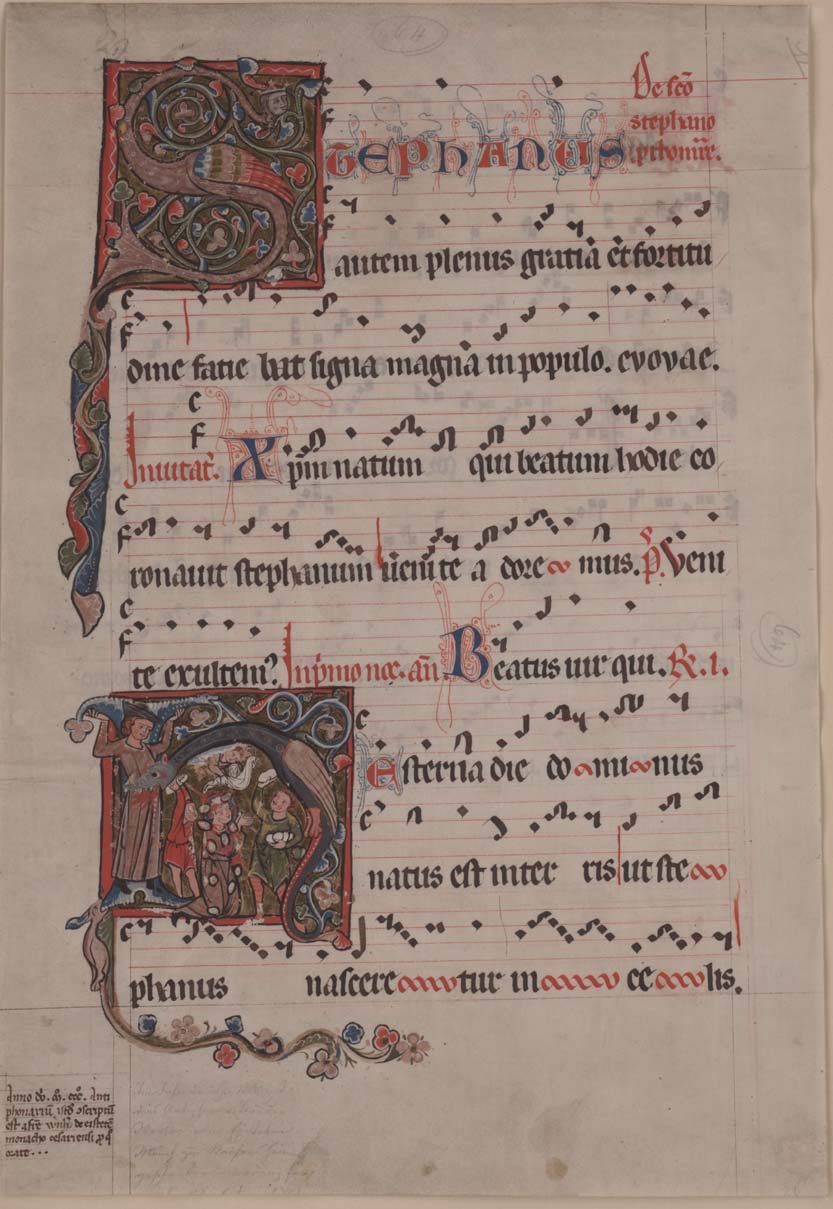 64
De sc̄o
stephano
STEPHANUS pthom̄re.
autem plenus gratia et fortitu
dine facie bat signa magna in populo. evovae.
Invitat̄. Xp̄m natum qui beatum hodie co
ronavit stephanum venite a dore mus. p̄. Veni
te exultem?. In p̄mo noc. an̄. Beatus vir qui. R. i.
Hesterna die do mi nus
natus est in ter ris ut ste
phanus nascere tur in ce lis.
64
Anno do. m. ccc. Anti
phonariū istd scriptū
est a fr̄e
monacho cesariensi
orate...